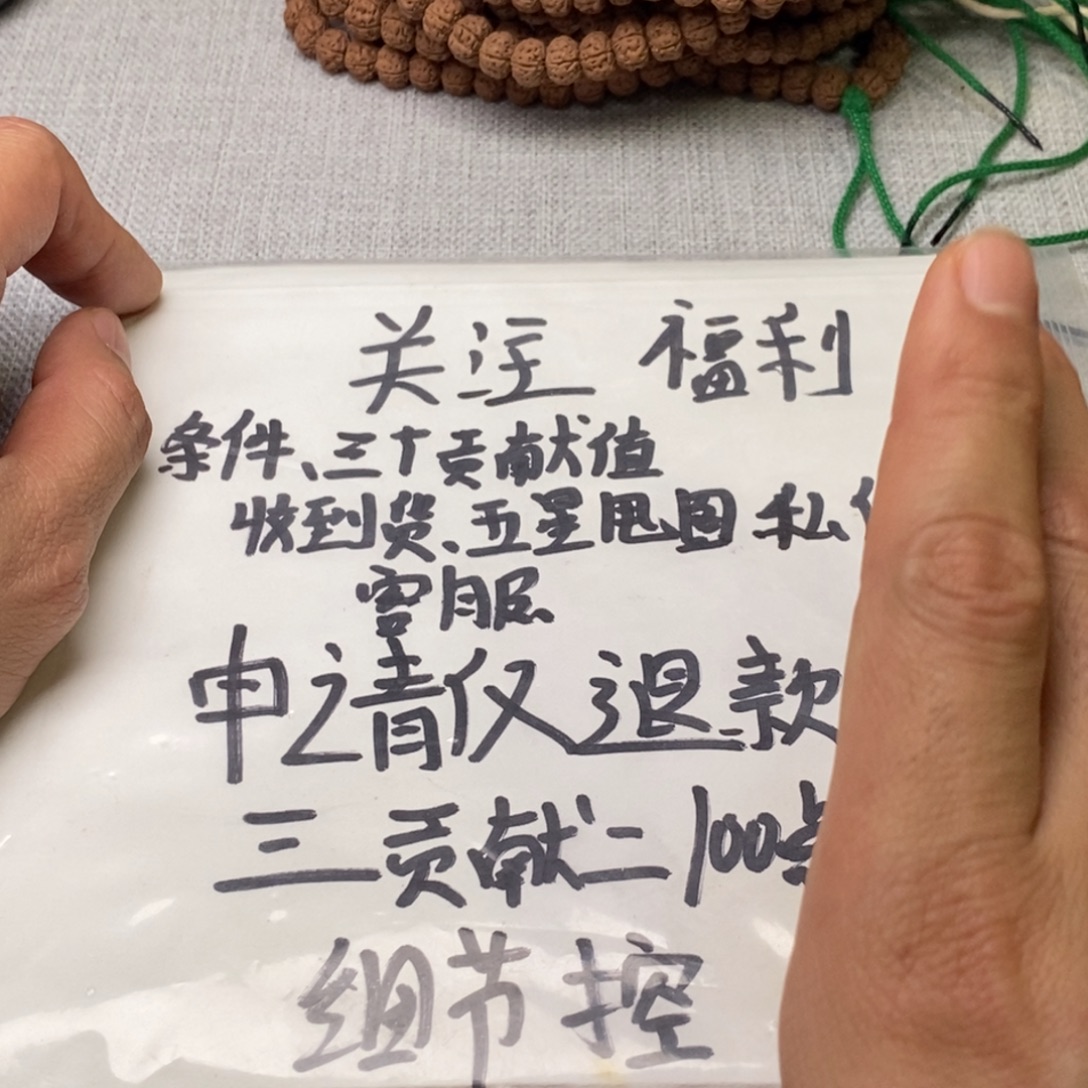 关注 福利
条件、三十贡献值
收到货、五星甩图 私
客服
申请仅退款
三贡献=100点
细节控